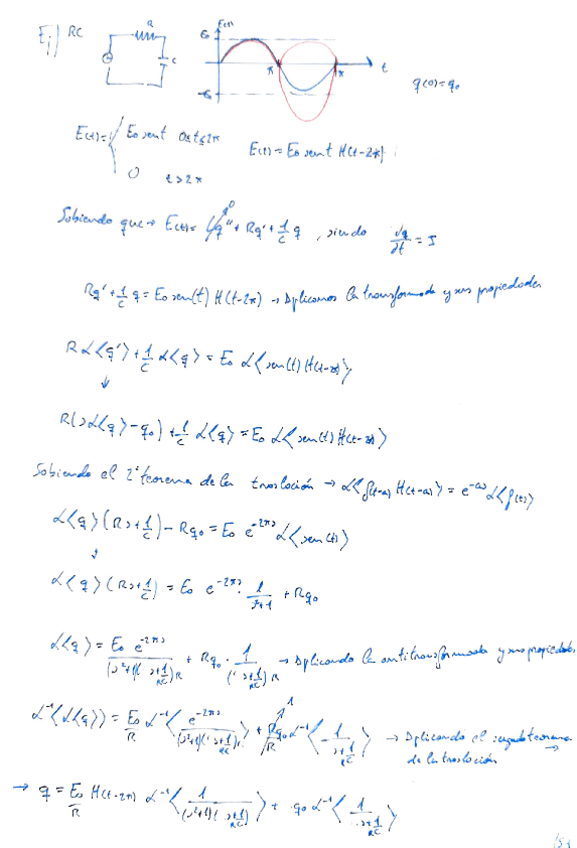 Ej) RC
R
C
E(t)
E₀
-E₀
π
π
t
q(0)=q₀
E(t)= { E₀ sen t 0≤t≤2π
0 t>2π
E(t)=E₀ sen t H(t-2π)
Sabiendo que → E(t)= Lq''⁰ + Rq' + 1/C q , siendo dq/dt = I
Rq' + 1/C q = E₀ sen(t) H(t-2π) → Aplicamos la transformada y sus propiedades
R ℒ⟨q'⟩ + 1/C ℒ⟨q⟩ = E₀ ℒ⟨sen(t) H(t-2π)⟩
↓
R(sℒ⟨q⟩-q₀) + 1/C ℒ⟨q⟩ = E₀ ℒ⟨sen(t) H(t-2π)⟩
Sabiendo el 2º teorema de la traslación → ℒ⟨f(t-a) H(t-a)⟩ = e^-as ℒ⟨f(t)⟩
ℒ⟨q⟩ (Rs+1/C) - Rq₀ = E₀ e^-2πs ℒ⟨sen(t)⟩
↓
ℒ⟨q⟩ (Rs+1/C) = E₀ e^-2πs · 1/(s²+1) + Rq₀
ℒ⟨q⟩ = E₀ e^-2πs/((s²+1)(s+1/RC)R) + Rq₀ · 1/((s+1/RC)R) → Aplicando la antitransformada y sus propiedades
ℒ⁻¹⟨ℒ⟨q⟩⟩ = E₀/R ℒ⁻¹⟨e^-2πs/((s²+1)(s+1/RC))⟩ + R/R¹ q₀ ℒ⁻¹⟨1/(s+1/RC)⟩ → Aplicando el segundo teorema
de la traslación
→ q = E₀/R H(t-2π) ℒ⁻¹⟨1/((s²+1)(s+1/RC))⟩ + q₀ ℒ⁻¹⟨1/(s+1/RC)⟩